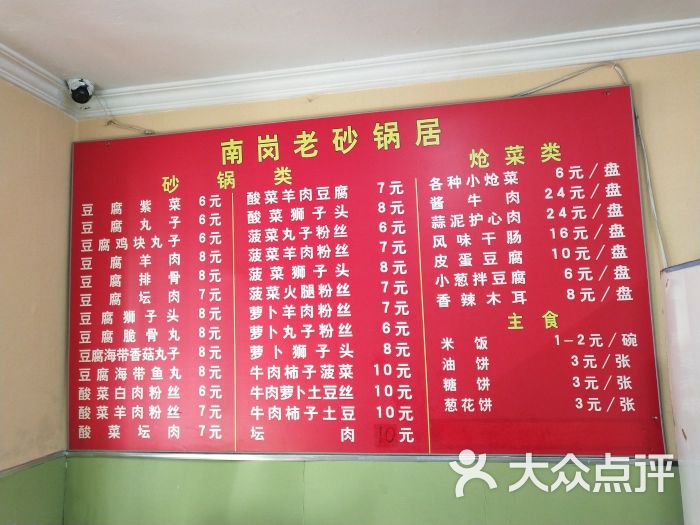 南岗老砂锅居
砂锅类
豆腐紫菜 6元
豆腐丸子 6元
豆腐鸡块丸子 6元
豆腐羊肉 8元
豆腐排骨 8元
豆腐坛肉 7元
豆腐狮子头 8元
豆腐脆骨丸 8元
豆腐海带香菇丸子 8元
豆腐海带鱼丸 8元
酸菜白肉粉丝 6元
酸菜羊肉粉丝 7元
酸菜坛肉 7元
酸菜羊肉豆腐 7元
酸菜狮子头 8元
菠菜丸子粉丝 6元
菠菜羊肉粉丝 7元
菠菜狮子头 8元
菠菜火腿粉丝 7元
萝卜羊肉粉丝 7元
萝卜丸子粉丝 6元
萝卜狮子头 8元
牛肉柿子菠菜 10元
牛肉萝卜土豆丝 10元
牛肉柿子土豆 10元
坛肉 10元
炝菜类
各种小炝菜 6元/盘
酱牛肉 24元/盘
蒜泥护心肉 24元/盘
风味干肠 16元/盘
皮蛋豆腐 10元/盘
小葱拌豆腐 6元/盘
香辣木耳 8元/盘
主食
米饭 1-2元/碗
油饼 3元/张
糖饼 3元/张
葱花饼 3元/张
大众点评